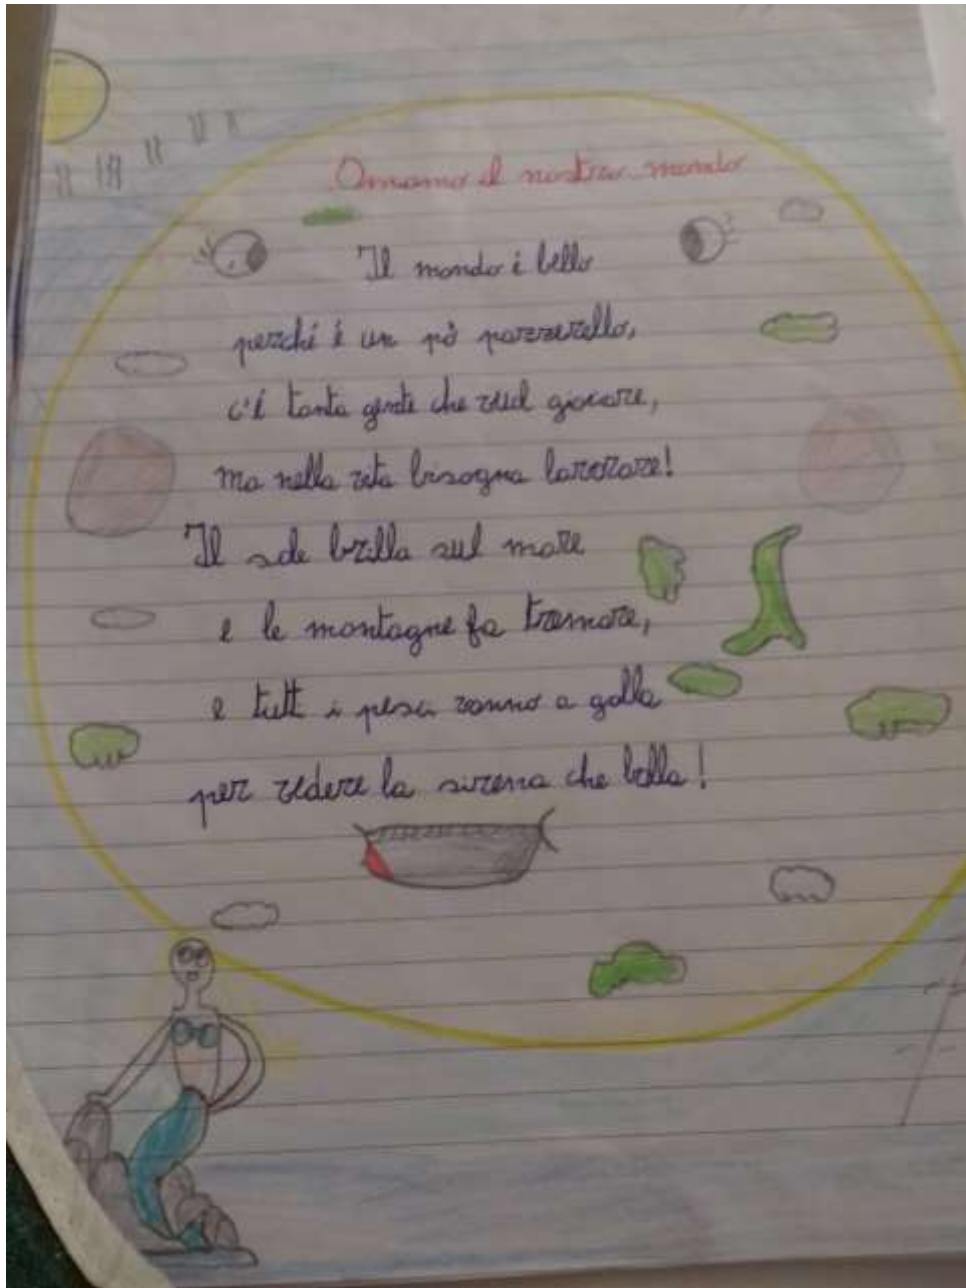 Amiamo il nostro mondo
Il mondo è bello
perché è un pò pazzerello,
c'è tanta gente che vuol giocare,
ma nella vita bisogna lavorare!
Il sole brilla sul mare
e le montagne fa tremare,
e tutti i pesci vanno a galla
per vedere la sirena che balla!